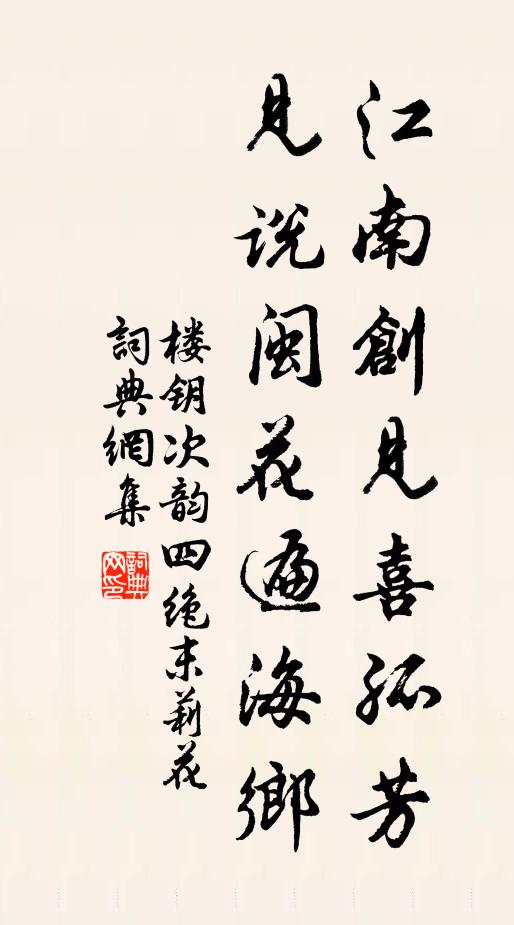 江南創見喜孤芳
見説閩花遍海鄉
楼钥次韵四绝末莉花
詞典網集
詞典網印